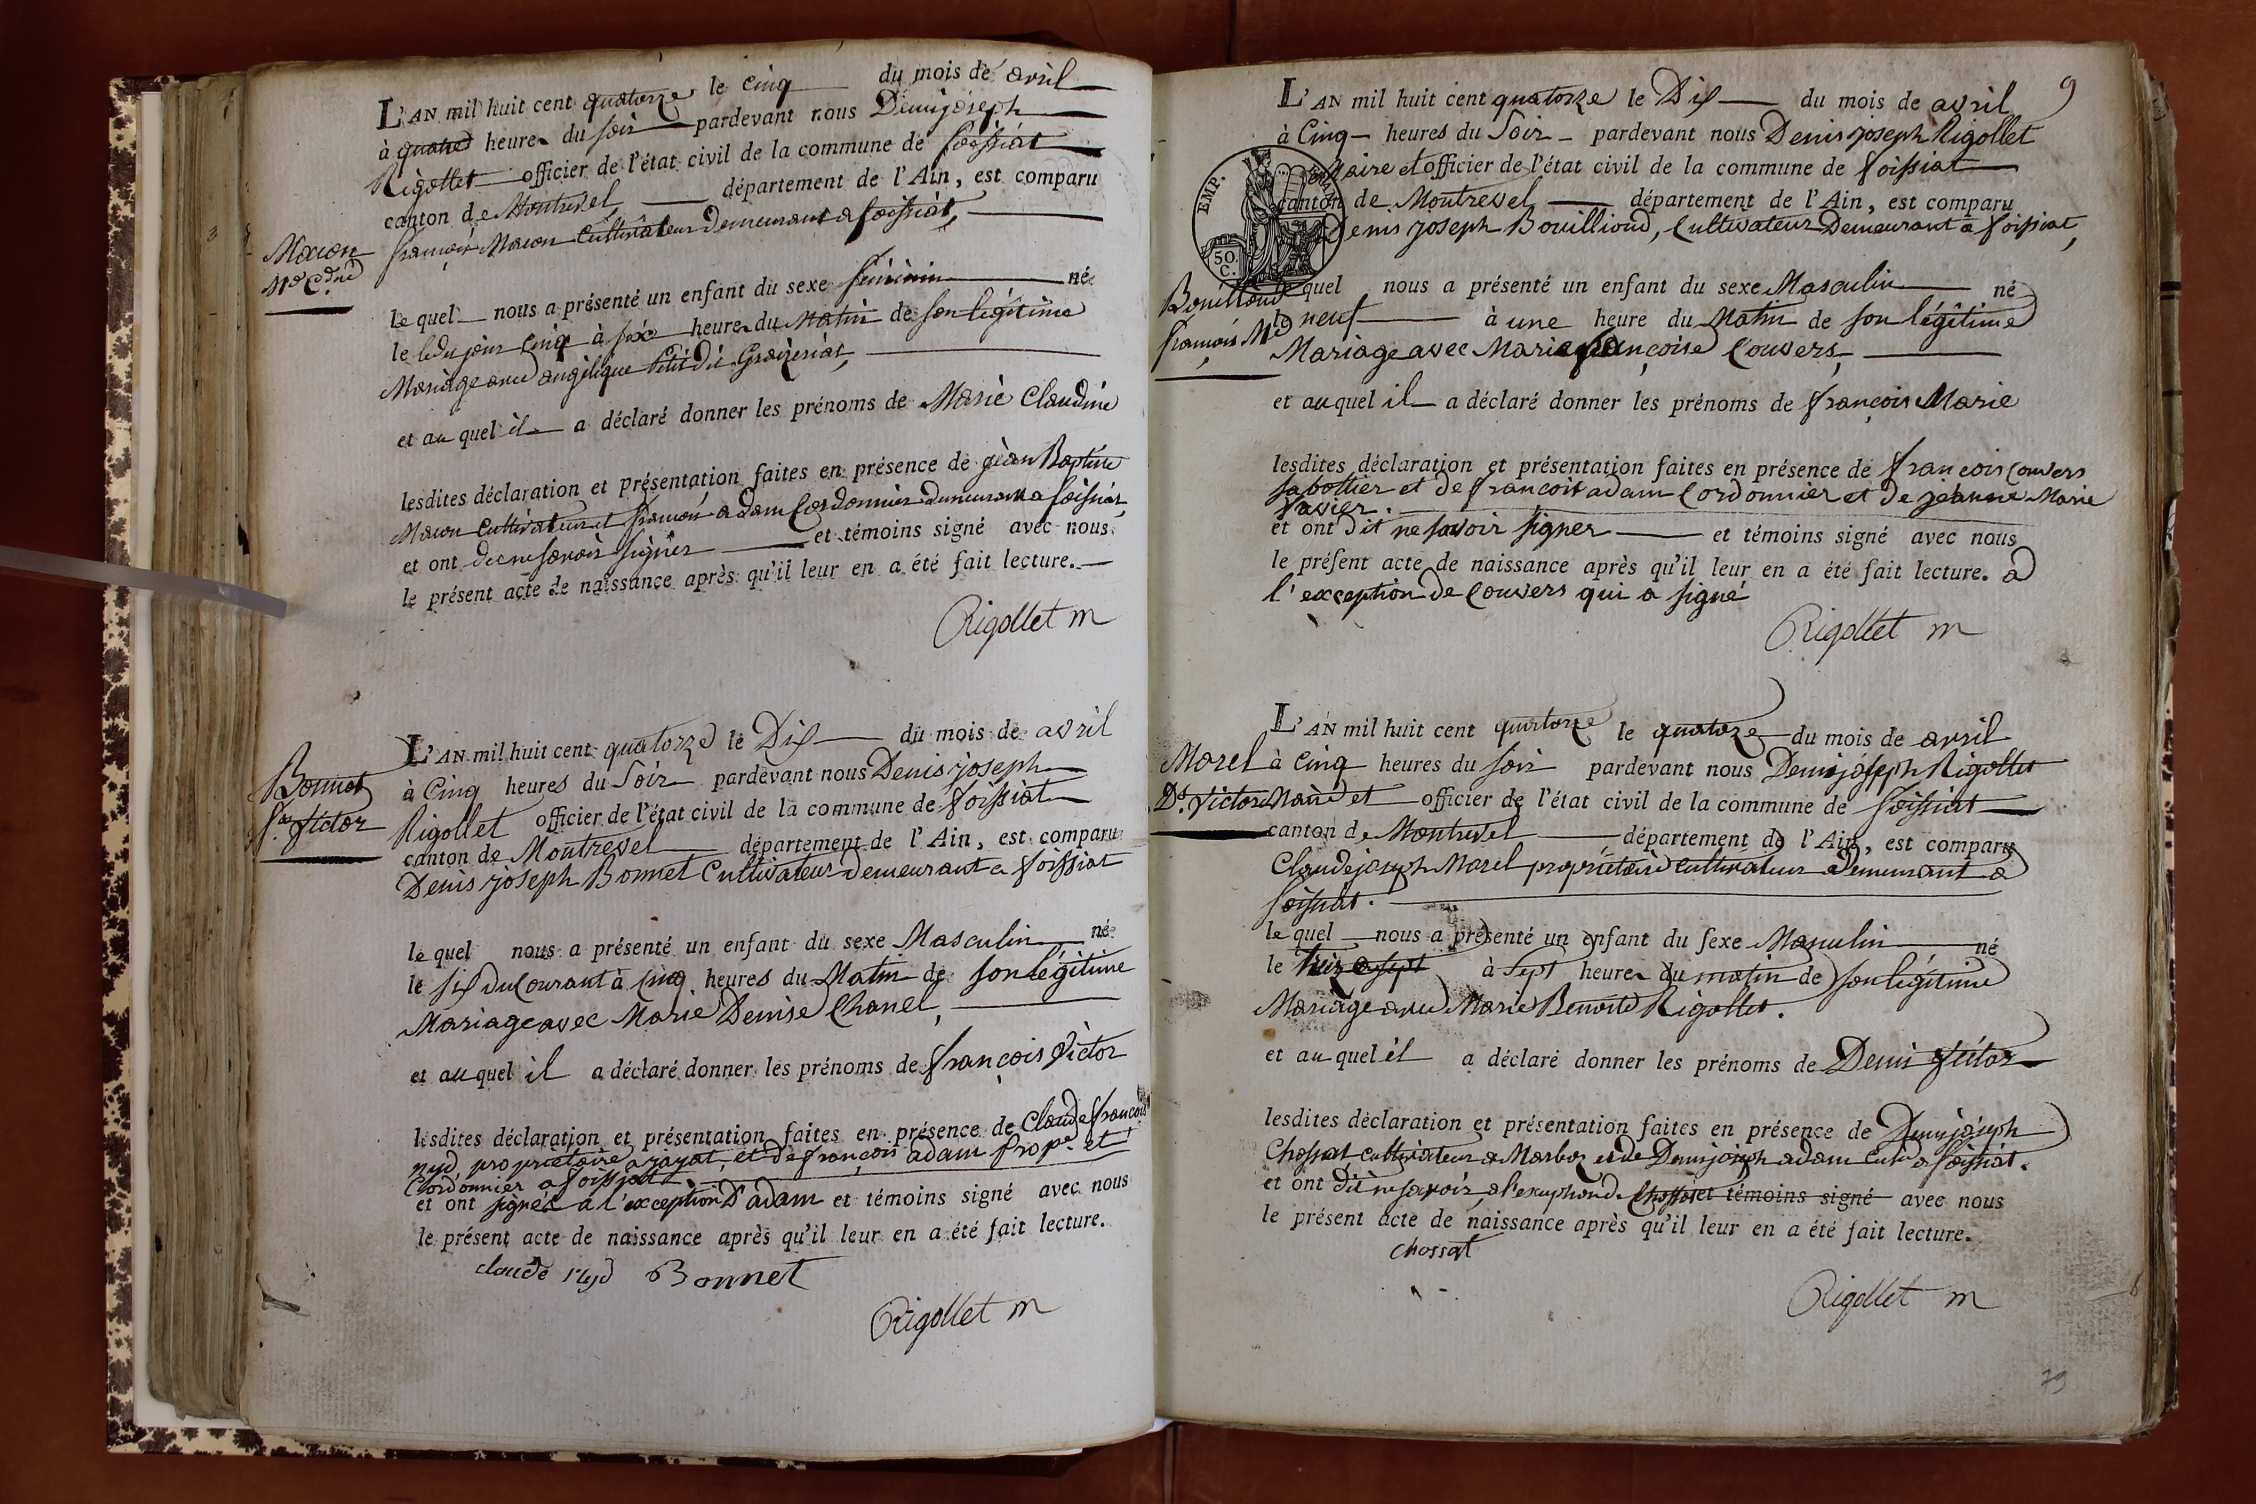 L'AN mil huit cent quatorze le cinq du mois de avril
à quatre heures du soir pardevant nous Denis joseph
Rigollet officier de l'état civil de la commune de foissiat
canton de Montrevel département de l'Ain, est comparu
françois Macon Cultivateur demeurant a foissiat,
Macon
Mie Cdine
le quel nous a présenté un enfant du sexe féminin né
le dit jour cinq à six heures du Matin de son légitime
Mariage avec angélique Petit de
et au quel il a déclaré donner les prénoms de Marie Claudine
lesdites déclaration et présentation faites en présence de jean Baptiste
Macon Cultivateur et françois adam Cordonnier demeurant a foissiat,
et ont dit ne savoir signer et témoins signé avec nous
le présent acte de naissance après qu'il leur en a été fait lecture.
Rigollet m
L'AN mil huit cent quatorze le Dix du mois de avril
à Cinq heures du Soir pardevant nous Denis joseph
Bonnet
fois Victor
Rigollet officier de l'état civil de la commune de foissiat
canton de Montrevel département de l'Ain, est comparu
Denis joseph Bonnet Cultivateur demeurant a foissiat
le quel nous a présenté un enfant du sexe Masculin né
le six du Courant à cinq heures du Matin de son légitime
Mariage avec Marie Denise Chanel,
et au quel il a déclaré donner les prénoms de françois Victor
lesdites déclaration et présentation faites en présence de Claude françois
nyd propriétaire a jayat, et de françois adam prop.re et
Cordonnier a foissiat
et ont signés a l'exception D'adam et témoins signé avec nous
le présent acte de naissance après qu'il leur en a été fait lecture.
claude nyd Bonnet
Rigollet m
9
L'AN mil huit cent quatorze le Dix du mois de avril
à Cinq heures du Soir pardevant nous Denis joseph Rigollet
Maire et officier de l'état civil de la commune de foissiat
canton de Montrevel département de l'Ain, est comparu
Denis joseph Bouilloud, Cultivateur Demeurant a foissiat,
EMP.
50.
C.
Bouilloud
françois Mie
le quel nous a présenté un enfant du sexe Masculin né
le neuf à une heure du Matin de son légitime
Mariage avec Marie françoise Couvers,
et au quel il a déclaré donner les prénoms de françois Marie
lesdites déclaration et présentation faites en présence de françois Couvers
sabottier et de françois adam Cordonnier et de jeanne Marie
favier.
et ont dit ne savoir signer et témoins signé avec nous
le présent acte de naissance après qu'il leur en a été fait lecture. a
l'exception de Couvers qui a signé
Rigollet m
L'AN mil huit cent quatorze le quatorze du mois de avril
Morel
Ds. Victor
à cinq heures du soir pardevant nous Denis joseph Rigollet
Maire et officier de l'état civil de la commune de foissiat
canton de Montrevel département de l'Ain, est comparu
Claude joseph Morel propriétaire cultivateur Demeurant a
foissiat.
le quel nous a présenté un enfant du sexe Masculin né
le à sept heures du matin de son légitime
Mariage avec Marie Benoite Rigollet.
et au quel il a déclaré donner les prénoms de Denis Victor
lesdites déclaration et présentation faites en présence de Denis joseph
Chossat cultivateur a Marboz et de Denis joseph adam cultr a foissiat.
et ont dit ne savoir, a l'exception de Chossat et témoins signé avec nous
le présent acte de naissance après qu'il leur en a été fait lecture.
chossat
Rigollet m
79